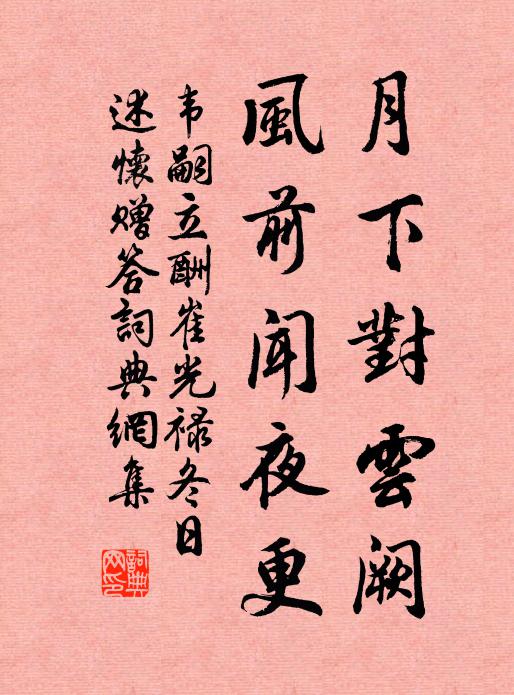 月下對雲闕
風前聞夜更
韦嗣立酬崔光禄冬日
述懷赠答詞典網集
詞典
网印